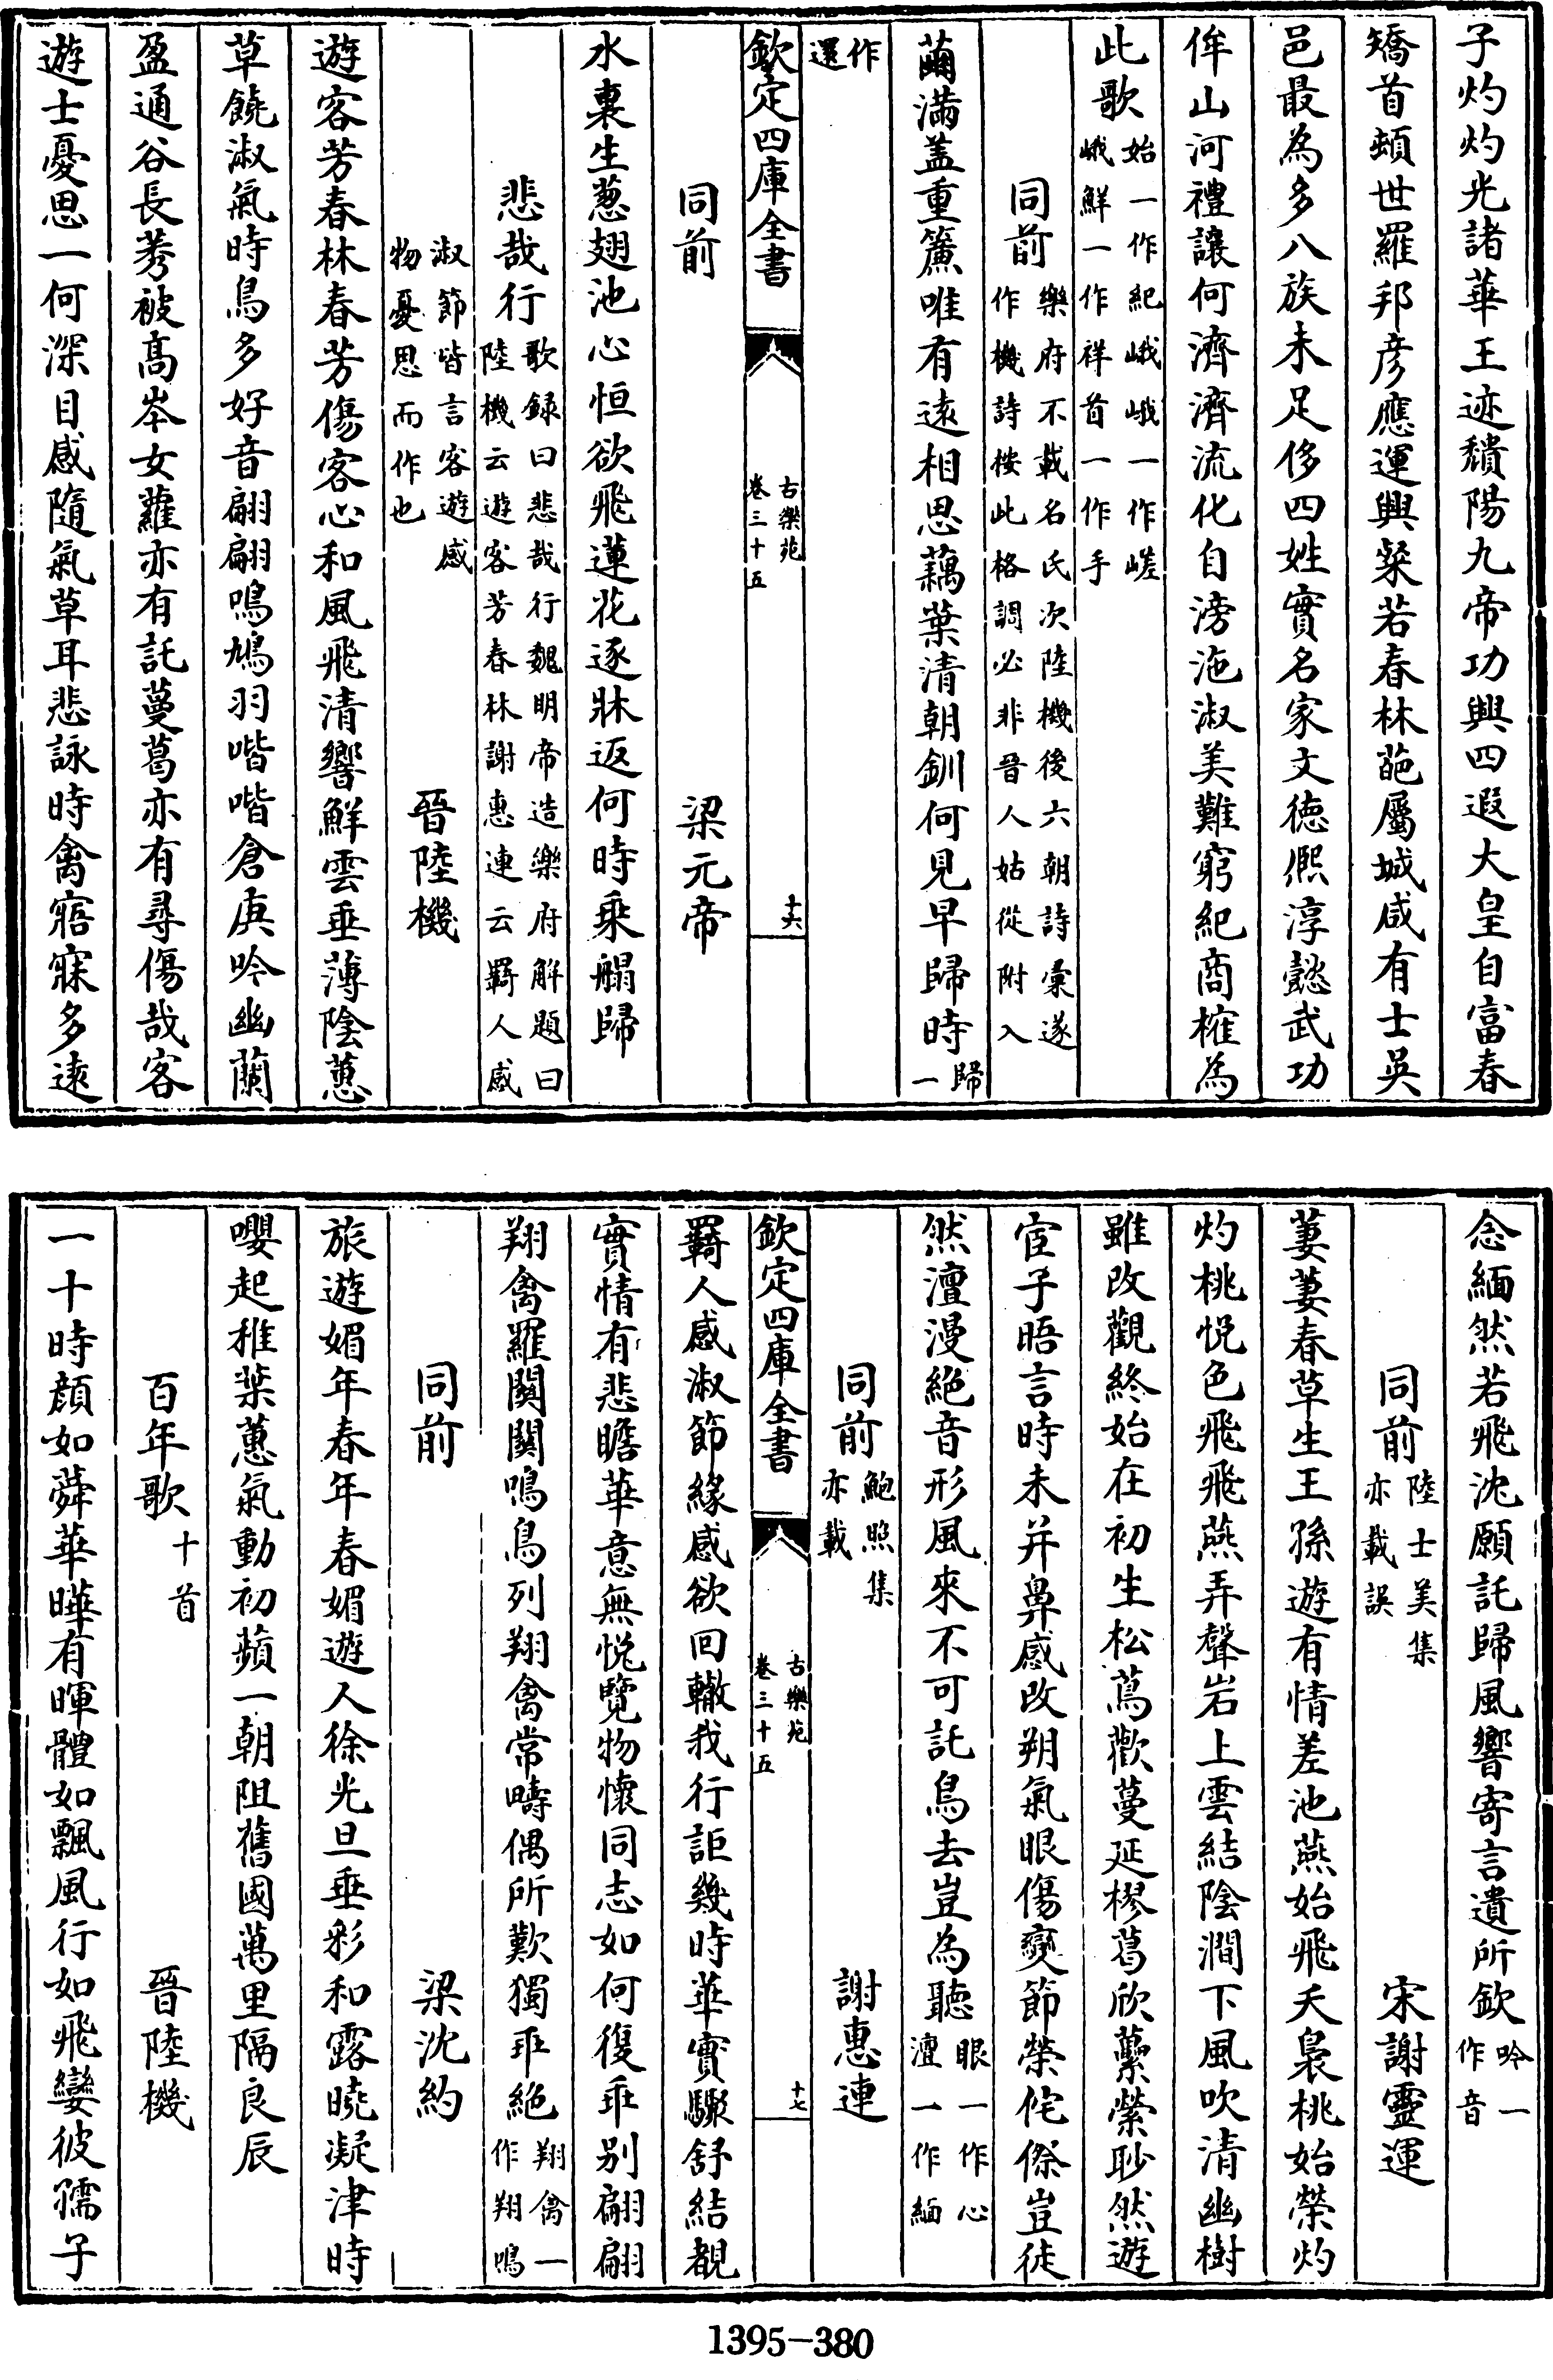 子灼灼光諸華王迹穨陽九帝功興四遐大皇自富春
矯首頓世羅邦彦應運興粲若春林葩屬城咸有士吳
邑最為多八族未足侈四姓實名家文徳熈淳懿武功
侔山河禮讓何濟濟流化自滂沲淑美難窮紀商榷為
此歌始一作紀峨峨一作嵯峨鮮一作祥首一作手
同前樂府不載名氏次陸機後六朝詩彚遂作機詩按此格調必非晉人姑從附入
繭滿盖重簾唯有逺相思藕葉清朝釧何見早歸時歸一
作還
欽定四庫全書
古樂苑卷三十五
十六
同前
梁元帝
水裏生葱翅池心恒欲飛蓮花逐牀返何時乗艒歸
悲哉行歌録曰悲哉行魏明帝造樂府解題曰陸機云遊客芳春林謝惠連云羇人感
淑節皆言客遊感物憂思而作也
晉陸機
遊客芳春林春芳傷客心和風飛清響鮮雲垂薄陰蕙
草饒淑氣時鳥多好音翩翩鳴鳩羽喈喈倉庚吟幽蘭
盈通谷長莠被髙岑女蘿亦有託蔓葛亦有尋傷哉客
遊士憂思一何深目感隨氣草耳悲詠時禽寤寐多逺
念緬然若飛沈願託歸風響寄言遺所欽吟一作音
同前陸士美集亦載誤
宋謝靈運
萋萋春草生王孫遊有情差池燕始飛夭裊桃始榮灼
灼桃悦色飛飛燕弄聲岩上雲結陰澗下風吹清幽樹
雖改觀終始在初生松蔦歡蔓延樛葛欣虆縈眇然遊
宦子晤言時未幷鼻感改朔氣眼傷變節榮侘傺豈徒
然澶漫絶音形風來不可託鳥去豈為聽眼一作心澶一作緬
同前鮑照集亦載
謝惠連
欽定四庫全書
古樂苑卷三十五
十七
羇人感淑節縁感欲回轍我行詎幾時華實驟舒結覩
實情有悲瞻華意無悦覽物懷同志如何復乖别翩翩
翔禽羅關關鳴鳥列翔禽常疇偶所歎獨乖絶翔禽一作翔鳴
同前
梁沈約
旅遊媚年春年春媚遊人徐光旦垂彩和露曉凝津時
嚶起稚葉蕙氣動初蘋一朝阻舊國萬里隔良辰
百年歌十首
晉陸機
一十時顔如蕣華曄有暉體如飄風行如飛孌彼孺子
1395-380